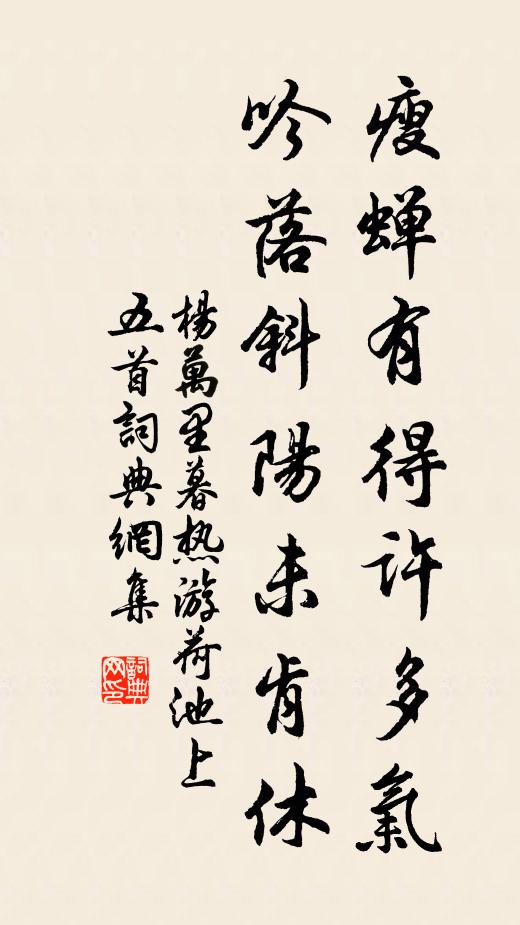 瘦蟬有得許多氣
吟落斜陽未肯休
楊萬里暮热游荷池上
五首詞典網集
詞典网印